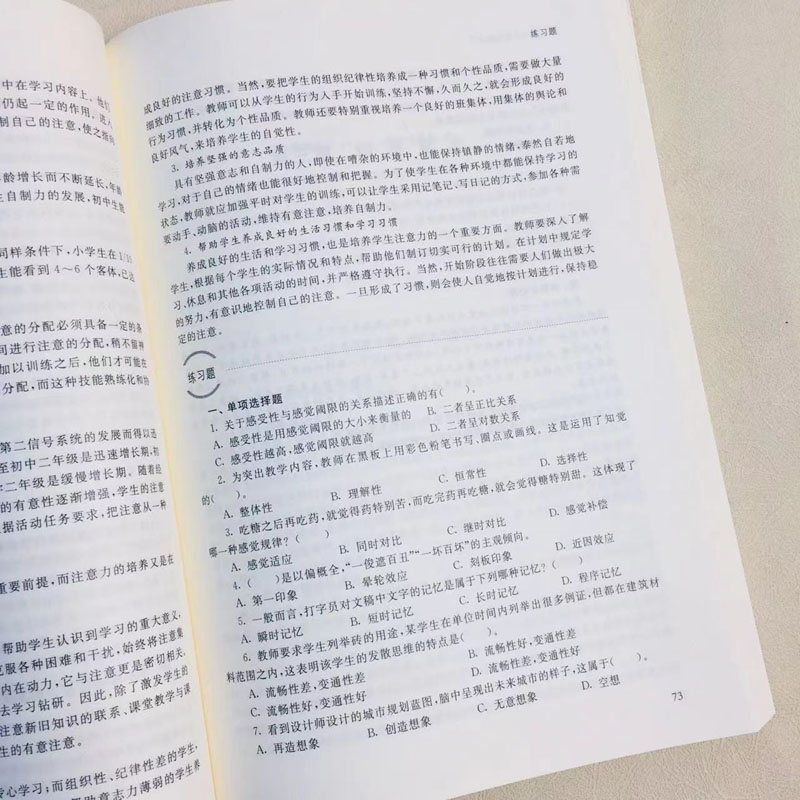 中在学习内容上。他们
仍起一定的作用。进入
制自己的注意，使之指向
龄增长而不断延长，年龄
生自制力的发展，初中生能
同样条件下，小学生在1/10
生能看到4～6个客体，已达
意的分配必须具备一定的条
同进行注意的分配，稍不留神
加以训练之后，他们才可能在
分配，而这种技能熟练化和协
第二信号系统的发展而得以迅
至初中二年级是迅速增长期，初
学二年级是缓慢增长期。随着经
的有意性逐渐增强，学生的注意
据活动任务要求，把注意从一种
重要前提，而注意力的培养又是在
帮助学生认识到学习的重大意义，
克服各种困难和干扰，始终将注意集
内在动力，它与注意更是密切相关，
去学习钻研。因此，除了激发学生的
注意新旧知识的联系、课堂教学与课
生的有意注意。
专心学习；而组织性、纪律性差的学生，
帮助意志力薄弱的学生养
练习题
成良好的注意习惯。当然，要把学生的组织纪律性培养成一种习惯和个性品质，需要做大量
细致的工作。教师可以从学生的行为入手开始训练，坚持不懈，久而久之，就会形成良好的
行为习惯，并转化为个性品质。教师还要特别重视培养一个良好的班集体，用集体的舆论和
良好风气，来培养学生的自觉性。
3. 培养坚强的意志品质
具有坚强意志和自制力的人，即使在嘈杂的环境中，也能保持镇静的情绪，泰然自若地
学习，对于自己的情绪也能很好地控制和把握。为了使学生在各种环境中都能保持学习的
状态，教师就应加强平时对学生的训练，可以让学生采用记笔记、写日记的方式，参加各种需
要动手、动脑的活动，维持有意注意，培养自制力。
4. 帮助学生养成良好的生活习惯和学习习惯
养成良好的生活和学习习惯，也是培养学生注意力的一个重要方面。教师要深入了解
学生，根据每个学生的实际情况和特点，帮助他们制订切实可行的计划。在计划中规定学
习、休息和其他各项活动的时间，并严格遵守执行。当然，开始阶段往往需要人们做出极大
的努力，有意识地控制自己的注意。一旦形成了习惯，则会使人自觉地按计划进行，保持稳
定的注意。
练习题
一、单项选择题
1. 关于感受性与感觉阈限的关系描述正确的有（ ）。
A. 感受性是用感觉阈限的大小来衡量的 B. 二者呈正比关系
C. 感受性越高，感觉阈限就越高 D. 二者呈对数关系
2. 为突出教学内容，教师在黑板上用彩色粉笔书写、圈点或画线。这是运用了知觉
的（ ）。
A. 整体性 B. 理解性 C. 恒常性 D. 选择性
3. 吃糖之后再吃药，就觉得药特别苦，而吃完药再吃糖，就会觉得糖特别甜。这体现了
哪一种感觉规律？（ ）
A. 感觉适应 B. 同时对比 C. 继时对比 D. 感觉补偿
4. （ ）是以偏概全，“一俊遮百丑”“一坏百坏”的主观倾向。
A. 第一印象 B. 晕轮效应 C. 刻板印象 D. 近因效应
5. 一般而言，打字员对文稿中文字的记忆是属于下列哪种记忆？（ ）
A. 瞬时记忆 B. 短时记忆 C. 长时记忆 D. 程序记忆
6. 教师要求学生列举砖的用途，某学生在单位时间内列举出很多例证，但都在建筑材
料范围之内，这表明该学生的发散思维的特点是（ ）。
A. 流畅性差，变通性差 B. 流畅性好，变通性差
C. 流畅性好，变通性好 D. 流畅性差，变通性好
7. 看到设计师设计的城市规划蓝图，脑中呈现出未来城市的样子，这属于（ ）。
A. 再造想象 B. 创造想象 C. 无意想象 D. 空想
73